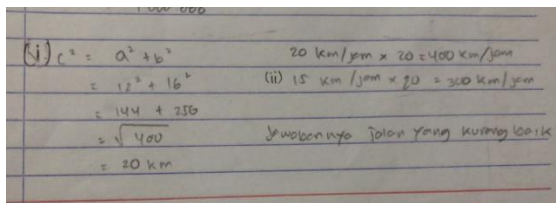 1 000 000
(i) c² = a² + b²
= 12² + 16²
= 144 + 256
= √400
= 20 km
20 km/jam x 20 = 400 km/jam
(ii) 15 km/jam x 20 = 300 km/jam
Jawabannya jalan yang kurang baik